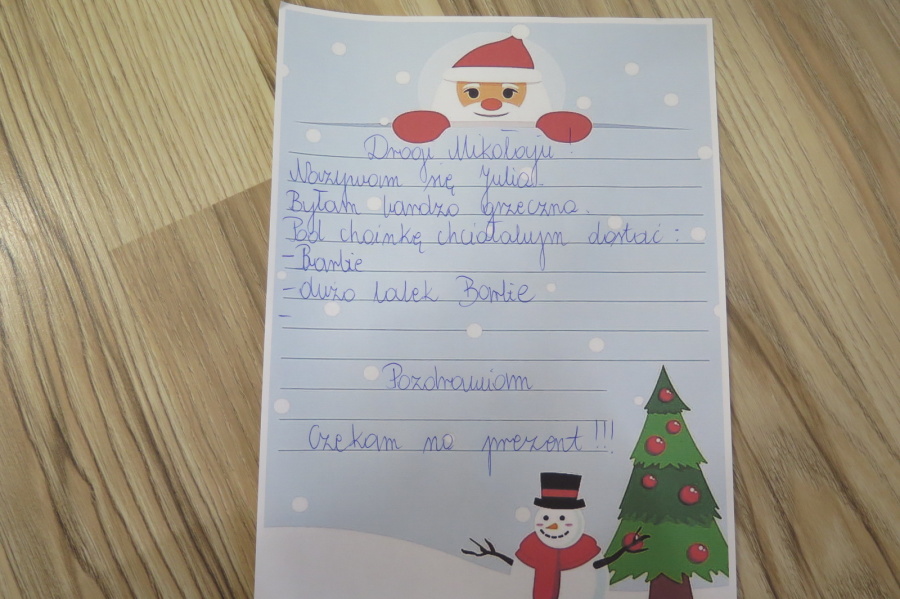 Drogi Mikołaju!
Nazywam się Julia.
Byłam bardzo grzeczna.
Pod choinkę chciałabym dostać:
- Barbie
- dużo lalek Barbie
-
Pozdrawiam
Czekam na prezent!!!